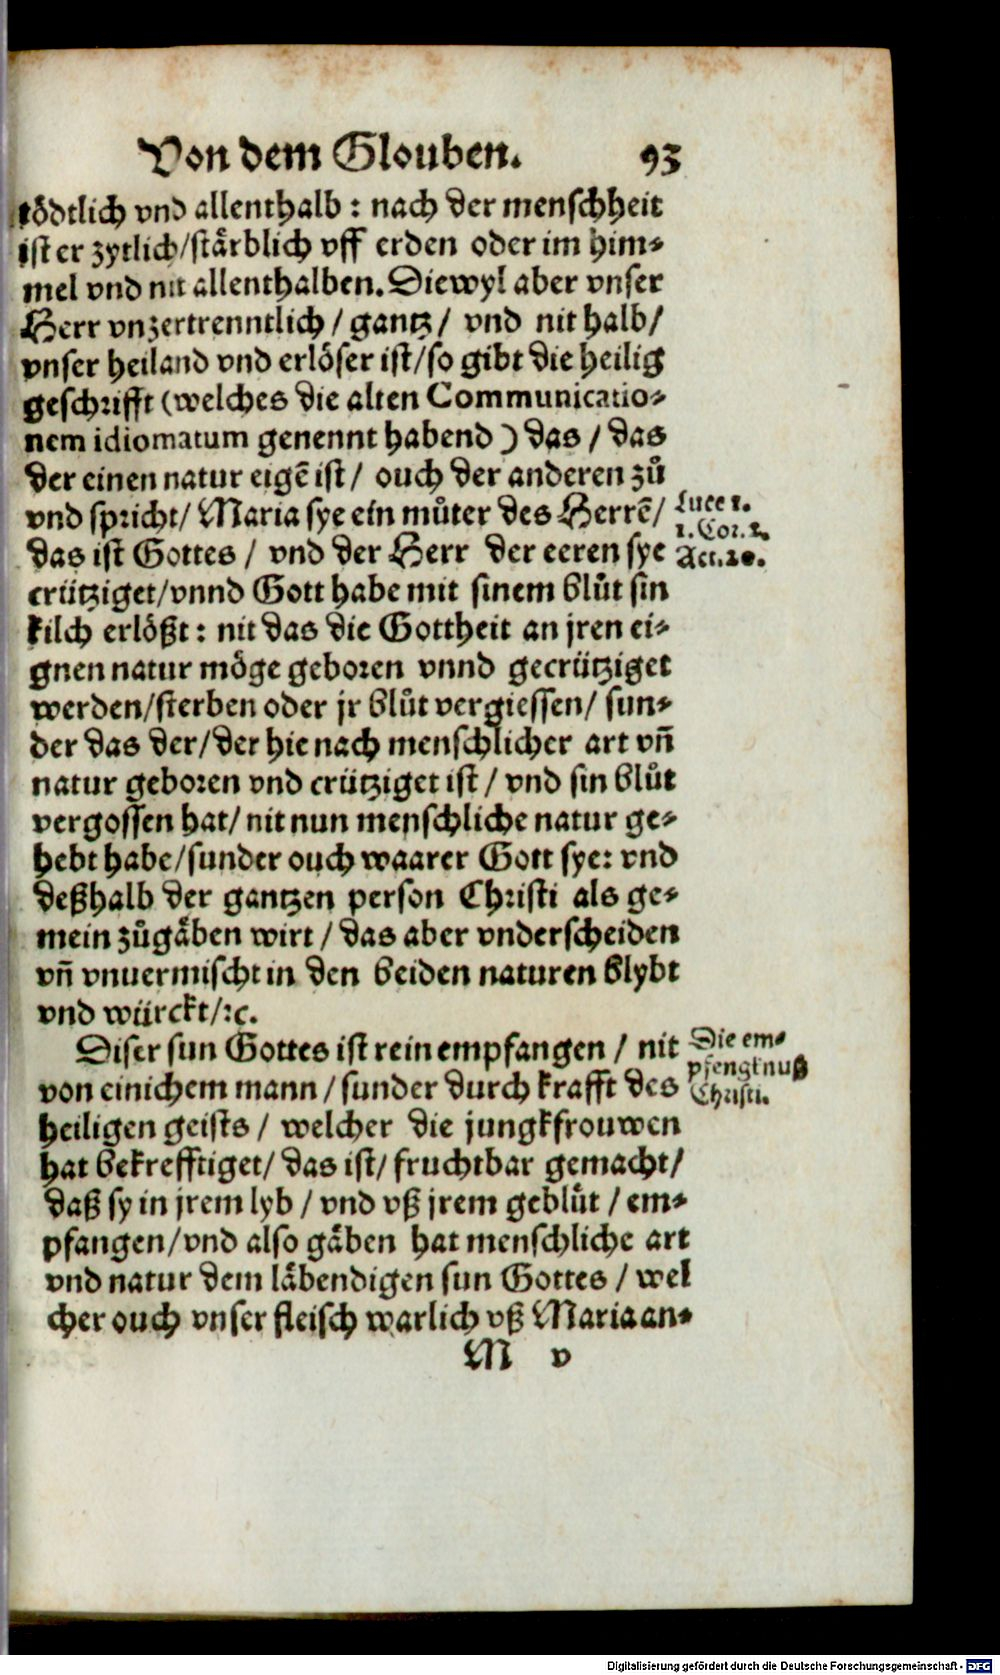 Von dem Glouben. 93
tödtlich vnd allenthalb : nach der menschheit
ist er zytlich/stärblich vff erden oder im him⸗
mel vnd nit allenthalben. Diewyl aber vnser
Herr vnzertrenntlich / gantz / vnd nit halb/
vnser heiland vnd erlöser ist/so gibt die heilig
geschrifft (welches die alten Communicatio⸗
nem idiomatum genennt habend ) das / das
der einen natur eigē ist / ouch der anderen zů
vnd spricht/ Maria sye ein můter des Herrē/
Luce 1.
1. Cor. 2.
das ist Gottes / vnd der Herr der eeren sye
Act. 20.
crütziget/vnnd Gott habe mit sinem blůt sin
kilch erlößt : nit das die Gottheit an jren ei⸗
gnen natur möge geboren vnnd gecrütziget
werden/sterben oder jr blůt vergiessen/ sun⸗
der das der/der hie nach menschlicher art vñ
natur geboren vnd crütziget ist / vnd sin blůt
vergossen hat/ nit nun menschliche natur ge⸗
hebt habe/sunder ouch waarer Gott sye: vnd
deßhalb der gantzen person Christi als ge⸗
mein zůgäben wirt / das aber vnderscheiden
vñ vnuermischt in den beiden naturen blybt
vnd würckt/ꝛc.
Diser sun Gottes ist rein empfangen / nit
Die em⸗
pfengknuß
Christi.
von einichem mann / sunder durch krafft des
heiligen geists / welcher die jungkfrouwen
hat bekrefftiget/ das ist/ fruchtbar gemacht/
daß sy in jrem lyb / vnd vß jrem geblüt / em⸗
pfangen/vnd also gäben hat menschliche art
vnd natur dem läbendigen sun Gottes / wel
cher ouch vnser fleisch warlich vß Maria an⸗
M v
Digitalisierung gefördert durch die Deutsche Forschungsgemeinschaft - DFG